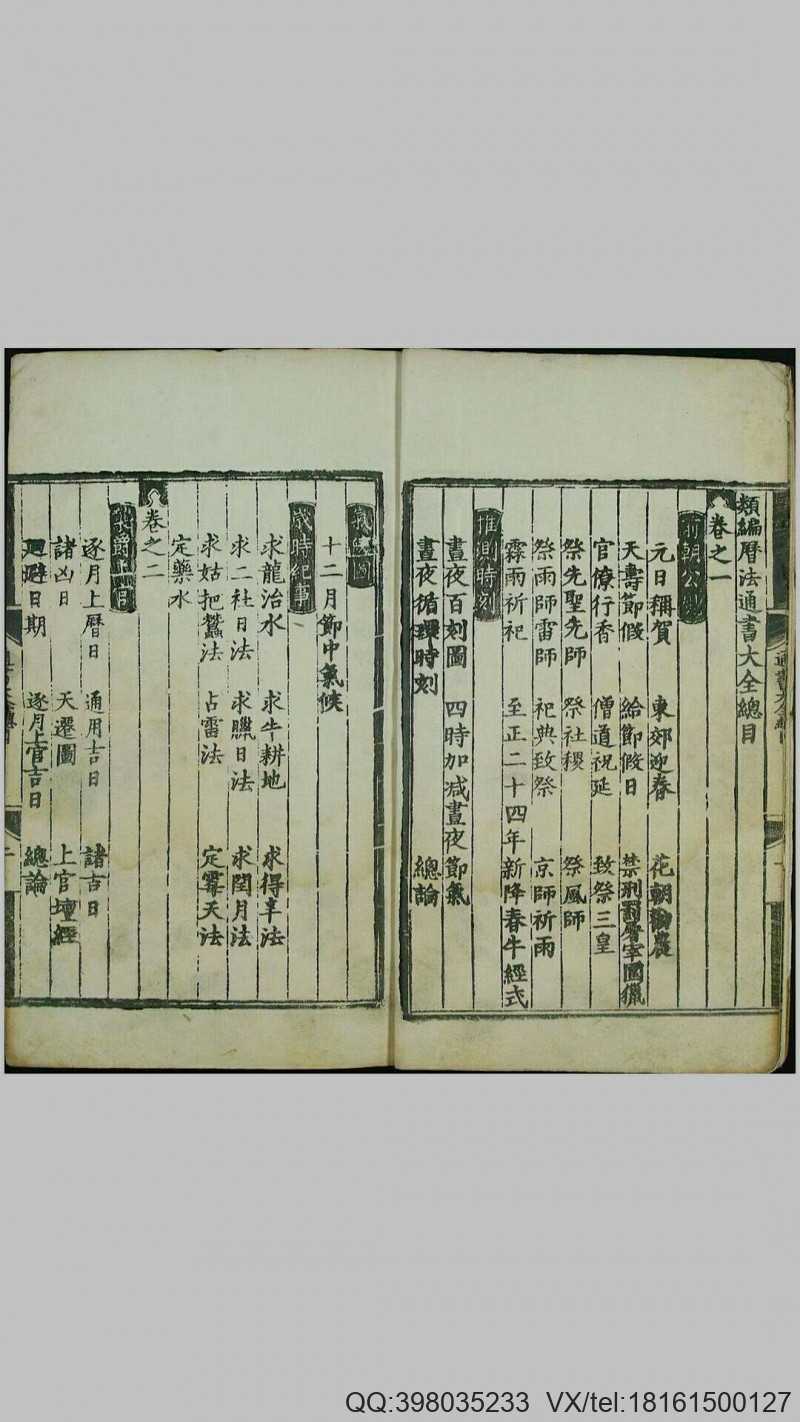 類編曆法通書大全總目
卷之一
前朝公
元日稱賀 東郊迎春 花朝勸農
天壽節假 給節假日 禁刑罰屠宰圍獵
官僚行香 僧道祝延 致祭三皇
祭先聖先師 祭社稷 祭風師
祭雨師雷師 祀典致祭 京師祈雨
霖雨祈祀 至正二十四年新降春牛經式
推測時刻
晝夜百刻圖 四時加減晝夜節氣
晝夜循環時刻 總論
氣候
十二月節中氣候
歲時紀事
求龍治水 求牛耕地 求得辛法
求二社日法 求臘日法 求閏月法
求姑把蠶法 占雷法 定霉天法
定藥水
卷之二
逐月上曆日 通用吉日 諸吉日
諸凶日 天遷圖 上官壇經
廻避日期 逐月上官吉日 總論
QQ:398035233 VX/tel:18161500127